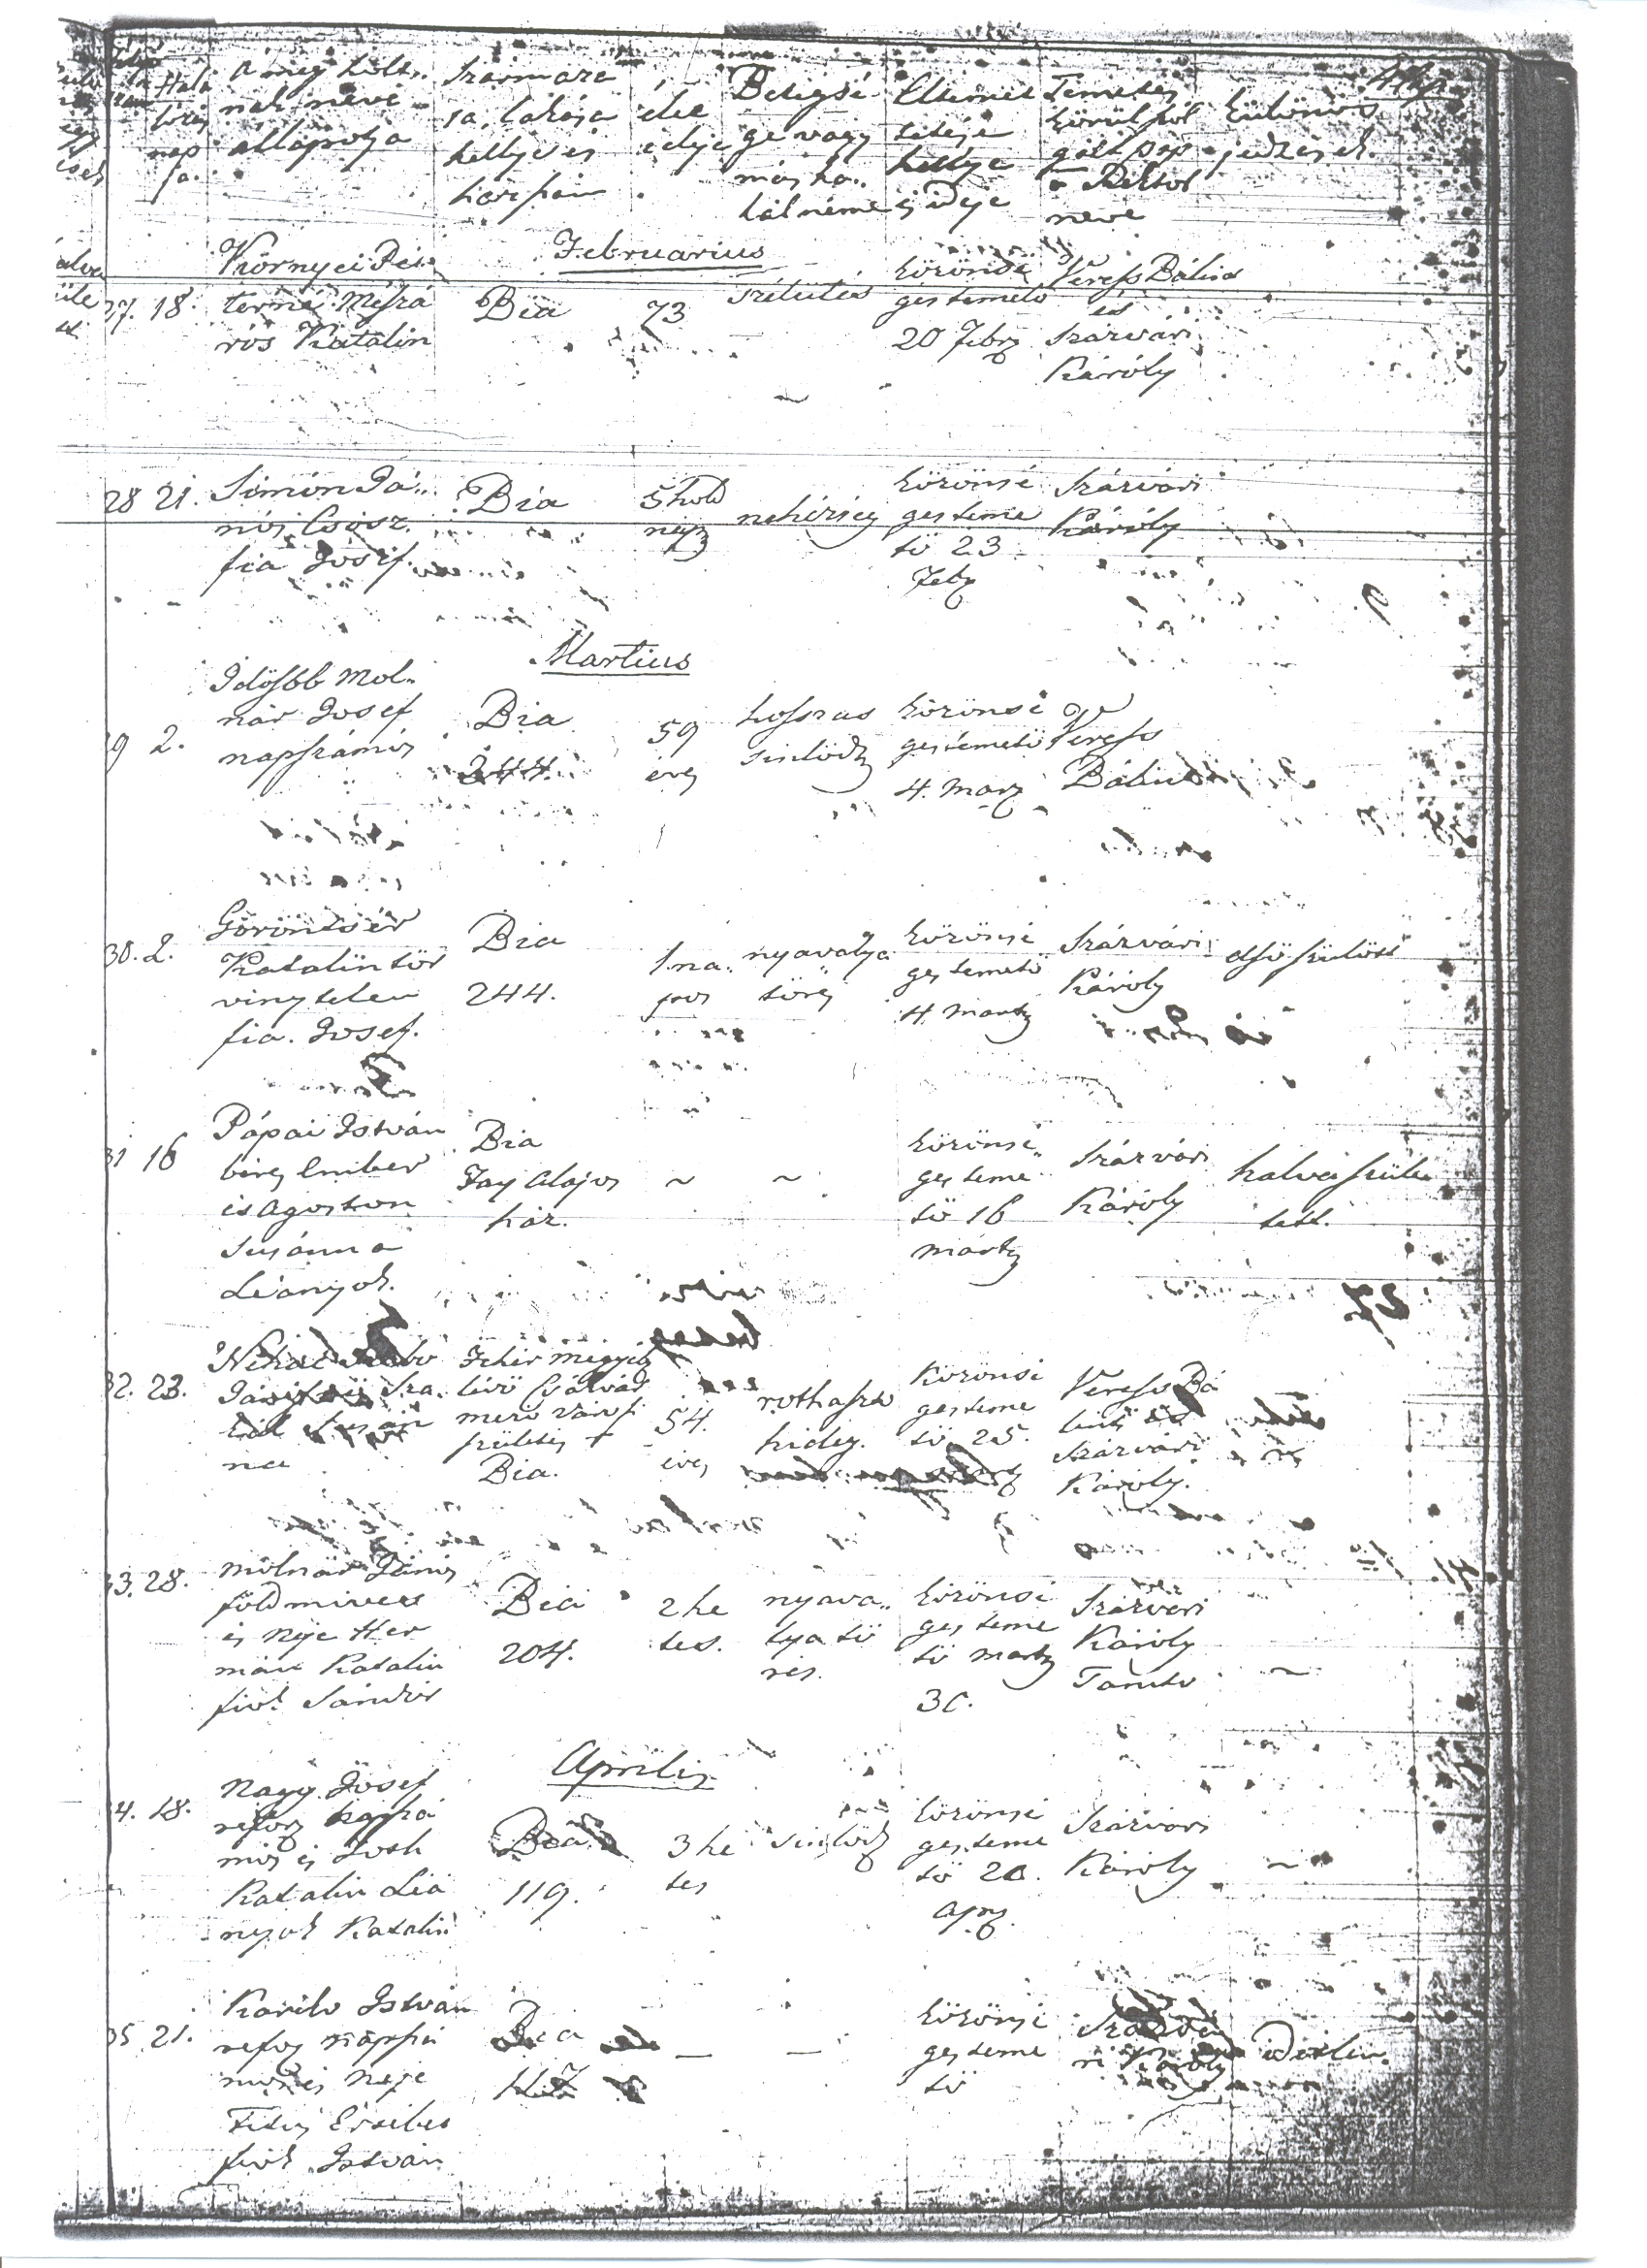 Halá
lozás
nap
ja.
a meg holt
nak neve
állapotja
Származa
sa, lakása
hellye és
ház szám
éle
ideje
Betegsé
ge vagy
más ha..
lál neme
Eltemet
tetése
hellye
s ideje
Temetés
körül szol
gált pap
Rektor
neve
Különös
jedzések.
Februarius
27. 18. Környei Pé
terné Mészá
ros Katalin
Bia
73
szélütés
közönsé
ges temető
20 Febr
Veress Bálint
és
Szárvári
Károly
28 21. Simon Já..
nos Csősz.
fia Josef.
Bia
5 hold
nap
nehézség
közönsé
ges teme
tő 23
Feb
Szárvári
Károly
Martius
29 2. Idősbb Mol..
nár Josef
napszámos
Bia
244.
59
éves
hosszas
sinlődz
közönsé
ges temető
4. Marz
Veress
Bálint
30. 2. Göröntsér
Katalin tör
vinytelen
fia. Josef.
Bia
244.
1 na..
pos
nyavalya
törés
közönsé
ges temető
4. Martz
Szárvári
Károly
első szülött
31 16 Pápai István
béres ember
és Agoston
Susánna
Léányok.
Bia
Fay Alajos
ház.
~ ~
közönsé
ges teme
tő 16
Mártz
Szárvári
Károly
halva szüle
tett.
32. 23.
na
Fehér megyéb
lévő Csákvár
mező város
születés
Bia.
54.
éves
rothaszt
hideg.
Közönsé
ges teme
tő 25.
Veress Bá
lint és
Szárvári
Károly.
33. 28. Molnár János
földmives
és Neje Her
mán Katalin
fiok Sándor
Bia
204.
2 he
tes.
nyava..
lya tö
rés.
közönsé
ges teme
tő Martz
30.
Szárvári
Károly
Tanito
~
Aprilis
34. 18. Nagy Josef
refor napszá
mos és Tosh
Katalin Léá
nyok Katalin
Bia
119.
3 he
tes
sinlődz
közönsé
ges teme
tő 20.
Apr.
Szárvári
Károly
~
35 21. Karikó István
refor napszá
mos és Neje
Erzsébet
fiok István
Bia
_ _
közönsé
ges teme
tő
Szárvá
ri Károly
idétlen.